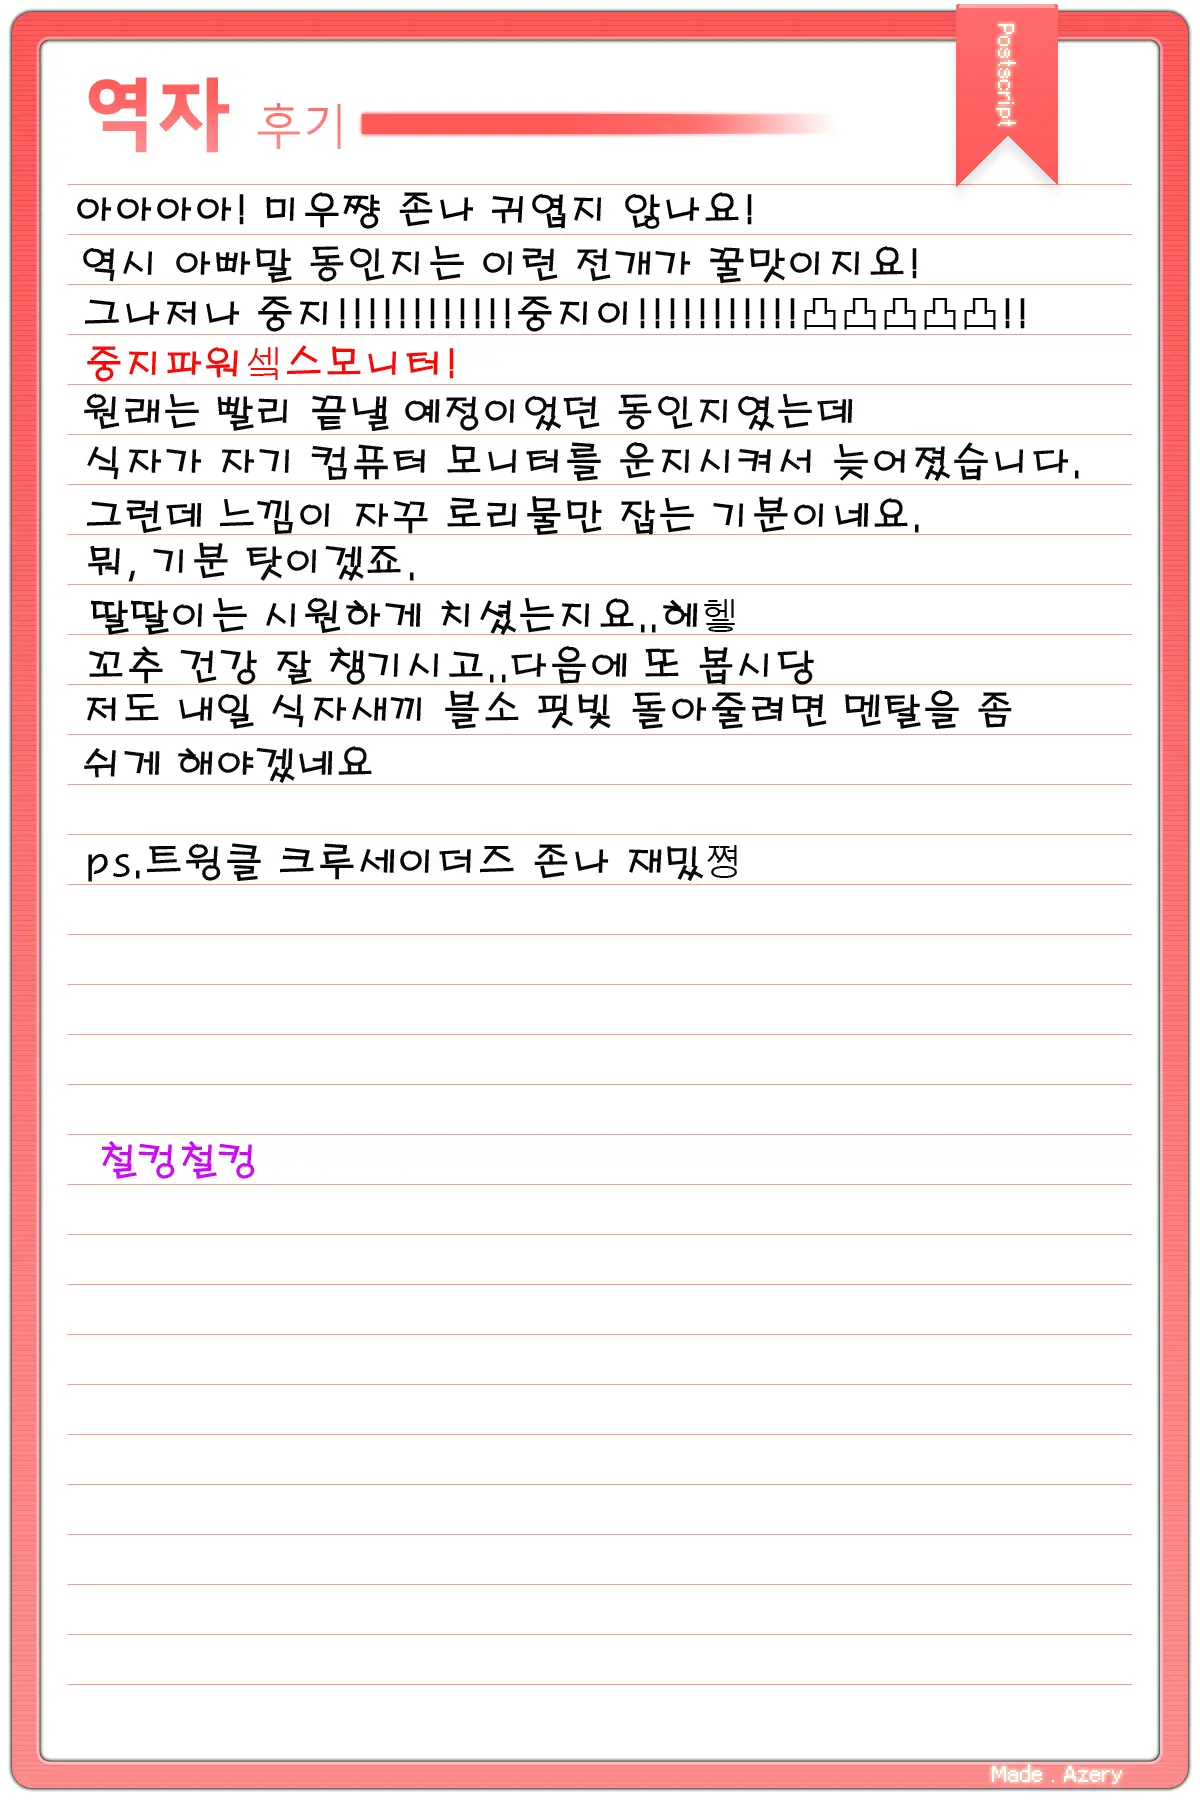 Postscript
역자 후기
아아아아! 미우쨩 존나 귀엽지 않나요!
역시 아빠말 동인지는 이런 전개가 꿀맛이지요!
그나저나 중지!!!!!!!!!!!!중지이!!!!!!!!!!!凸凸凸凸凸!!
중지파워섹스모니터!
원래는 빨리 끝낼 예정이었던 동인지였는데
식자가 자기 컴퓨터 모니터를 운지시켜서 늦어졌습니다.
그런데 느낌이 자꾸 로리물만 잡는 기분이네요.
뭐, 기분 탓이겠죠.
딸딸이는 시원하게 치셨는지요..헤헿
꼬추 건강 잘 챙기시고..다음에 또 봅시당
저도 내일 식자새끼 블소 핏빛 돌아줄려면 멘탈을 좀
쉬게 해야겠네요
ps.트윙클 크루세이더즈 존나 재밌쪙
철컹철컹
Made . Azery